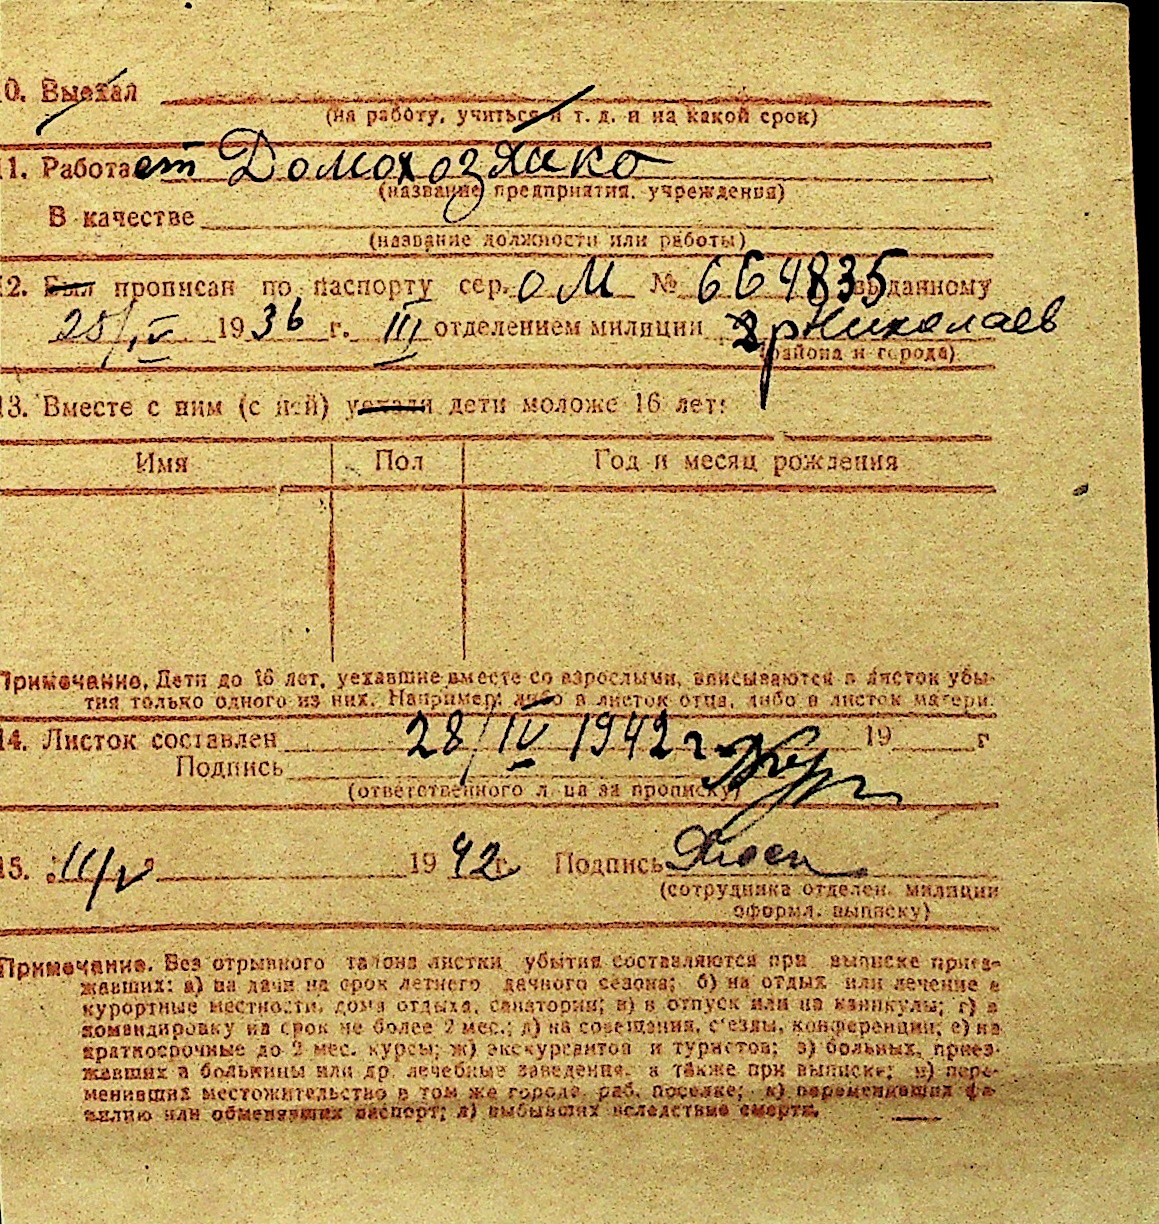 10. Выехал
(на работу, учиться и т. д. и на какой срок)
11. Работает Домохозяйко
(название предприятия, учреждения)
В качестве
(название должности или работы)
12. Был прописан по паспорту сер. ОМ № 664835 выданному
25/IV 1936 г. III отделением милиции гр Николаев
(района и города)
13. Вместе с ним (с ней) уехали дети моложе 16 лет:
Имя Пол Год и месяц рождения
Примечание. Дети до 16 лет, уехавшие вместе со взрослыми, вписываются в листок убы-
тия только одного из них. Например: либо в листок отца, либо в листок матери.
14. Листок составлен 28/IV 1942 г. 19 г
Подпись
(ответственного лица за прописку)
15. 1942 г. Подпись
(сотрудника отделен. милиции
оформл. выписку)
Примечание. Без отрывного талона листки убытия составляются при выписке приез-
жавших: а) на дачи на срок летнего дачного сезона; б) на отдых или лечение в
курортные местности, дома отдыха, санатории; в) в отпуск или на каникулы; г) в
командировку на срок не более 2 мес.; д) на совещания, с'езды, конференции; е) на
краткосрочные до 2 мес. курсы; ж) экскурсантов и туристов; з) больных, приез-
жавших в больницы или др. лечебные заведения, а также при выписке; и) пере-
менивших местожительство в том же городе, раб. поселке; к) переменивших фа-
милию или обменявших паспорт; л) выбывших вследствие смерти.